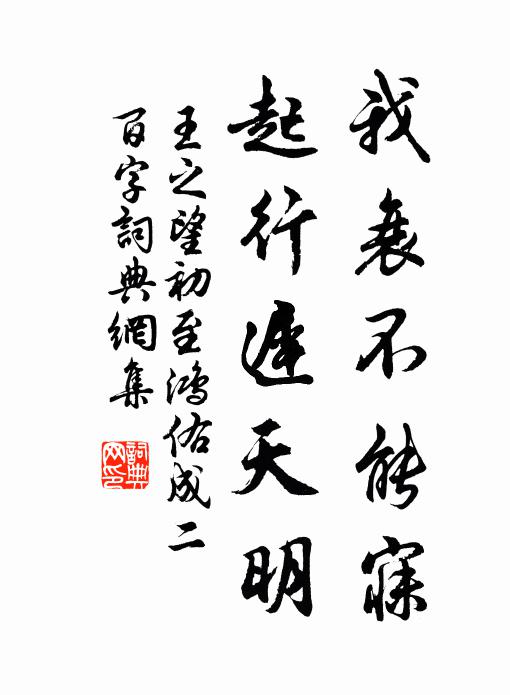 我衰不能寐
起行遲天明
王之望初至鴻佑成二
百字詞典網集
詞典
网印